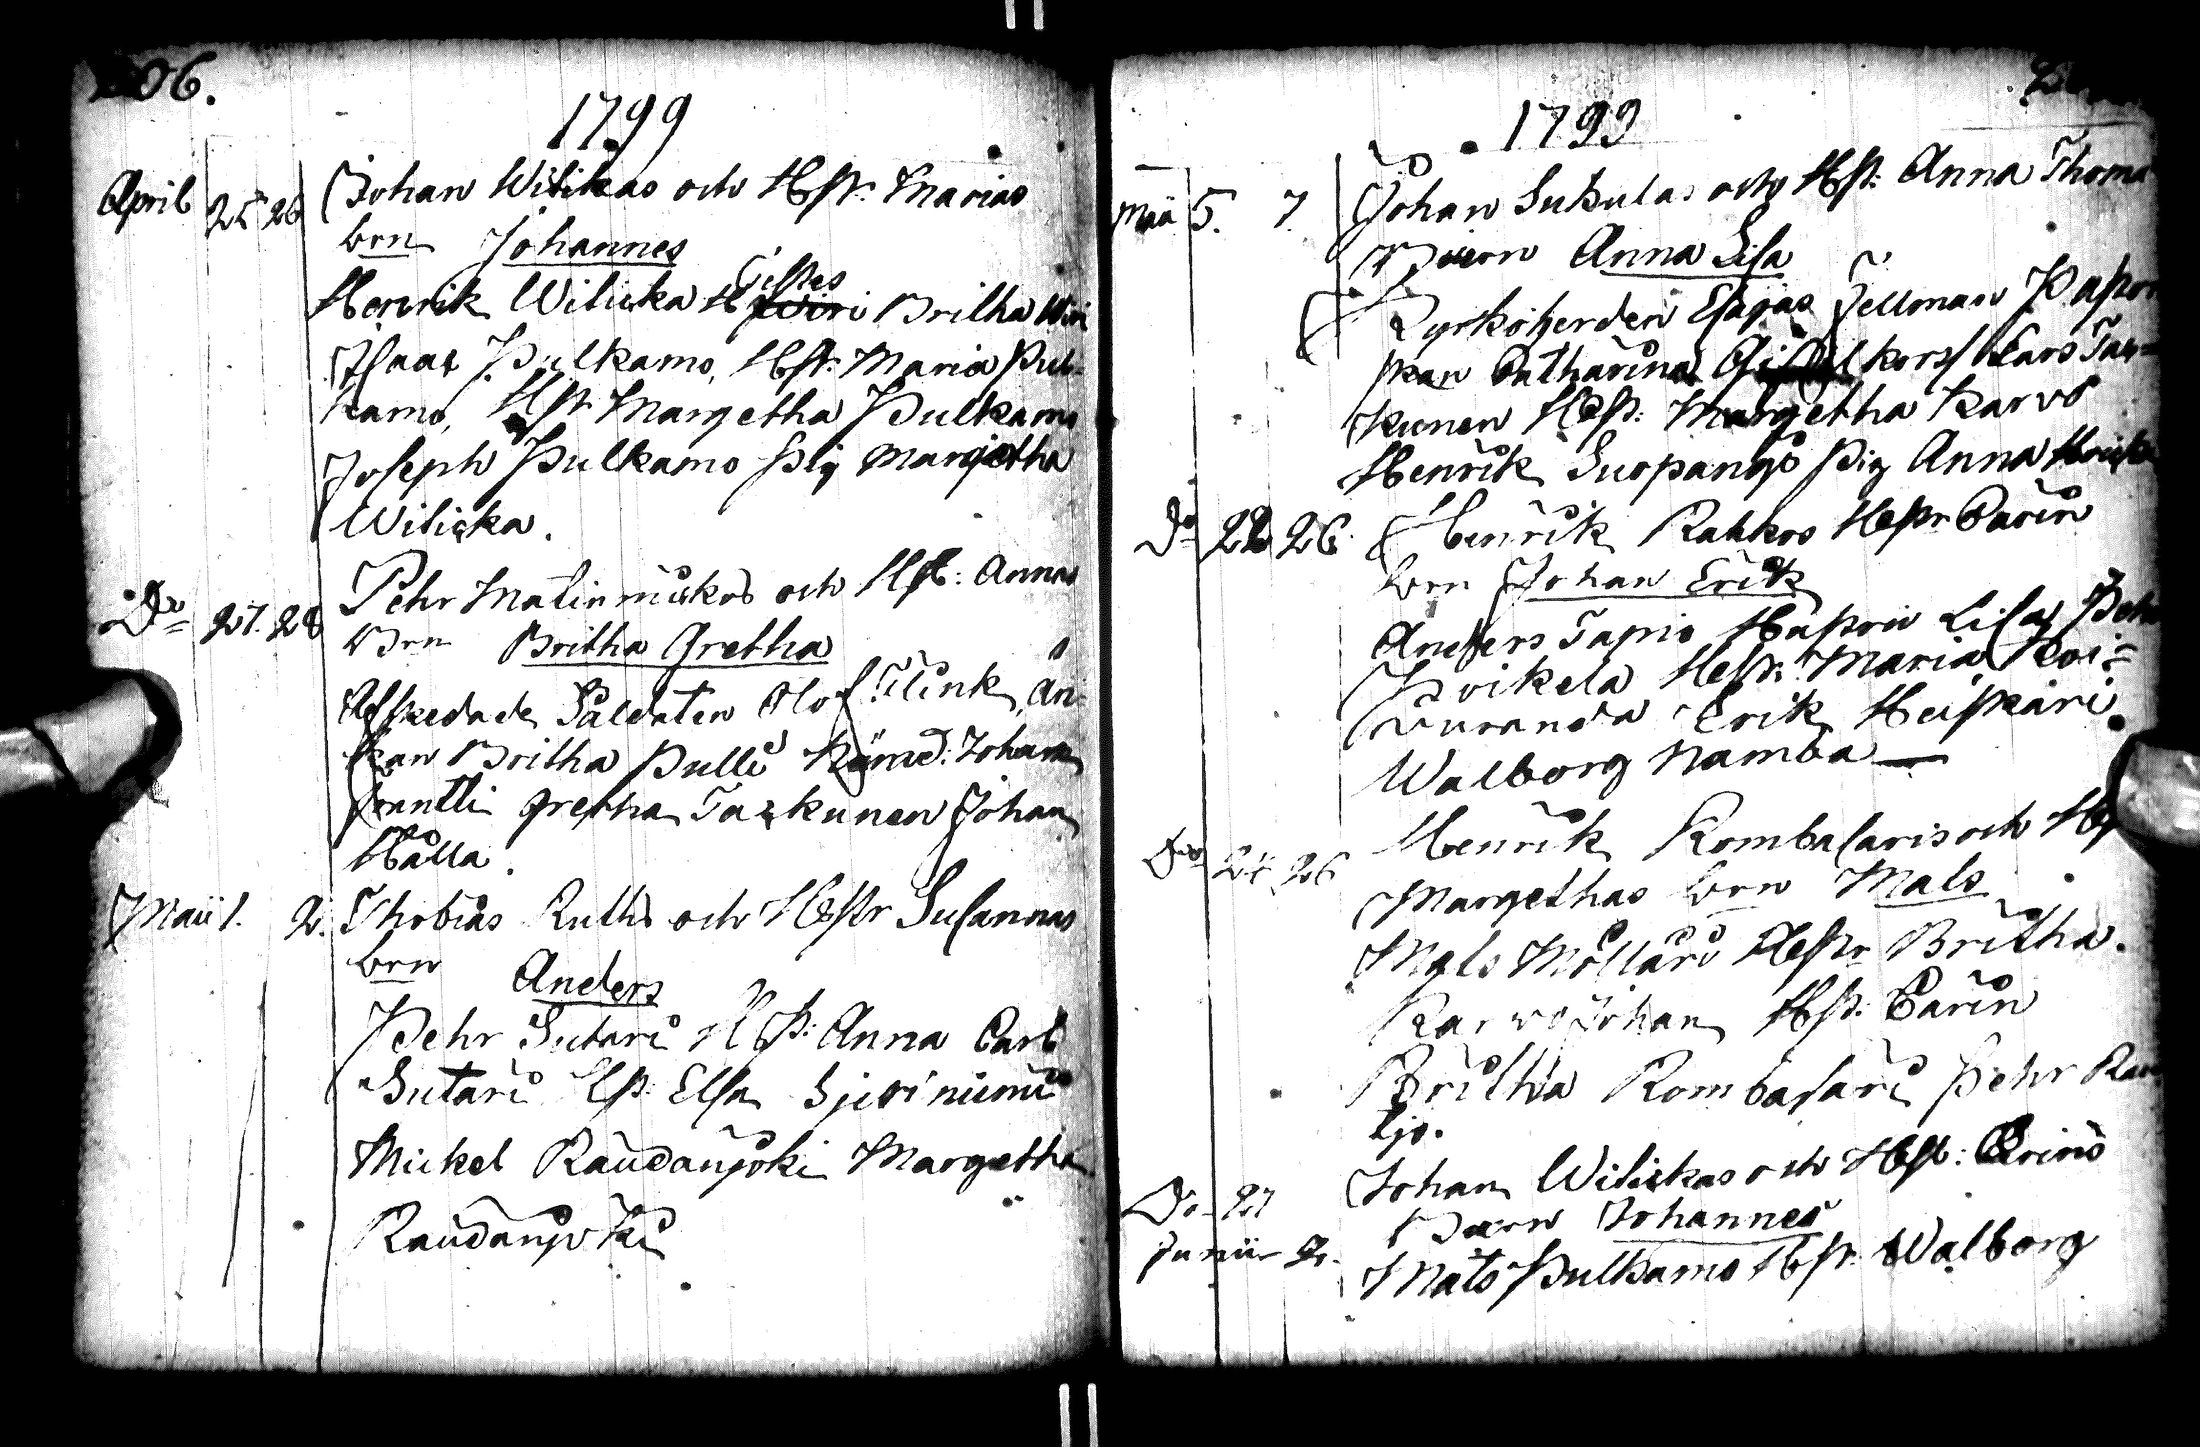 06.
1799
April 25 26 Johan Wilickas och Hstr: Marias
brn Johannes
Henrik Wilicka H Gistes Britha Wiri
Isaac Pulkamo, Hstr: Maria Pul-
kamo, Hstr Margetha Pulkamo
Joseph Pulkamo Pig Margetha
Wilicka.
Do 27. 28 Pehr Matinmickos och Hstr: Annas
Brn Britha Gretha
Afskedade Saldaten Olof Flink, än-
kan Britha Pulli Johan
Frantti Gretha Taskunen Johan
Halla.
Maii 1. 2. Thobias Ruthis och Hstr Susannas
brn Anders
Pehr Sutari Hst: Anna Carl
Sutari Hst: Elsa
Mickel Raudanjoki Margetha
Raudanjoki
1799
Maii 5. 7. Johan Sukulas och Hst: Anna Thoma
Barn Anna Lisa
Kyrkoherden Esajas Fellman
Catharina Lars Tas-
kunen Hstr: Margetha Karvo
Henrik Suopangi Pig Anna
Do 22 26. Henrik Rahkos Hstr Carin
brn Johan Erik
Anders Tapio Hustru Lisa, Pehr
Poikela Hstr. Maria Koi-
vuranda Erik Heiskari
Walborg Namba
Do 24 26 Henrik Kombasaris och
Margethas brn Mats
Mats Möllari Hstr Britha.
Karvo Johan Hst: Carin
Britha Kombasari Pehr
ljo.
Do 27 Johan Wilickas och Hst: Brinis
Barn Johannes
Junii 2. Mats Pulkamo Hstr. Walborg